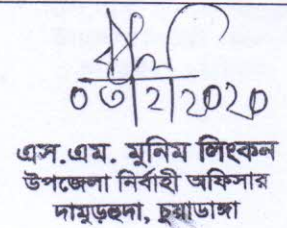 ০৩|২|2020
এস.এম. মুনিম লিংকন
উপজেলা নির্বাহী অফিসার
দামুড়হুদা, চুয়াডাঙ্গা